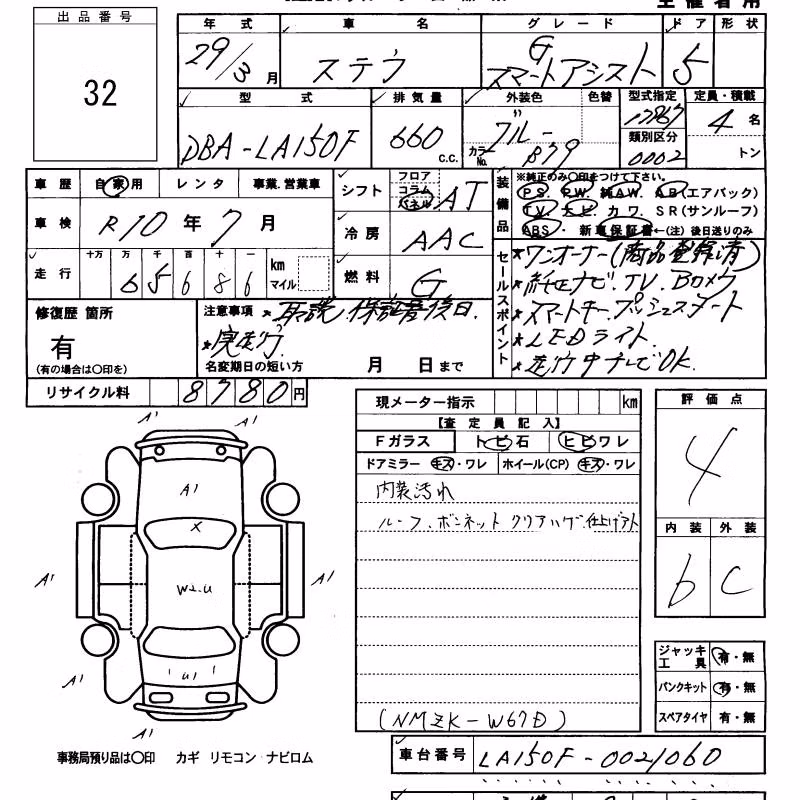 出品番号
32
年式 車名 グレード ドア 形状
29/3月 ステラ G スマートアシスト 5
型式 排気量 外装色 色替 型式指定 定員・積載
DBA-LA150F 660 C.C. ブルー カラーNo. B79 17867 4名
類別区分 0002 トン
車歴 自家用 レンタ 事業.営業車
シフト フロア コラム パネル AT
装備品 ※純正のみ〇印をつけて下さい。
PS. PW. 純AW. AB(エアバック)
TV. ナビ. カワ. SR(サンルーフ)
ABS・ 新車保証書←(注)後日送りのみ
車検 R10年7月
冷房 AAC
走行 十万 万 千 百 十 一
65686 km マイル
燃料 G
セールスポイント
*ワンオーナー(商品登録済)
*純正ナビ.TV.Bカメラ
*スマートキー.プッシュスタート
*LEDライト
*走行中テレビOK.
修復歴 箇所
有
(有の場合は〇印を)
注意事項 *取説.保証書後日.
*実走行
名変期日の短い方 月 日まで
リサイクル料 8780円
現メーター指示 km
【査定員記入】
Fガラス トビ石 ヒビワレ
ドアミラー キズ・ワレ ホイール(CP) キズ・ワレ
内装汚れ
ルーフ、ボンネット クリアハゲ.仕上げアト
(NMZK-W67D)
評価点
4
内装 外装
b C
ジャッキ工具 有・無
パンクキット 有・無
スペアタイヤ 有・無
A1 A1
A1
X
A1 W2.U A1
U1
A1 A1
A1
事務局預り品は〇印 カギ リモコン ナビロム
車台番号 LA150F-0021060